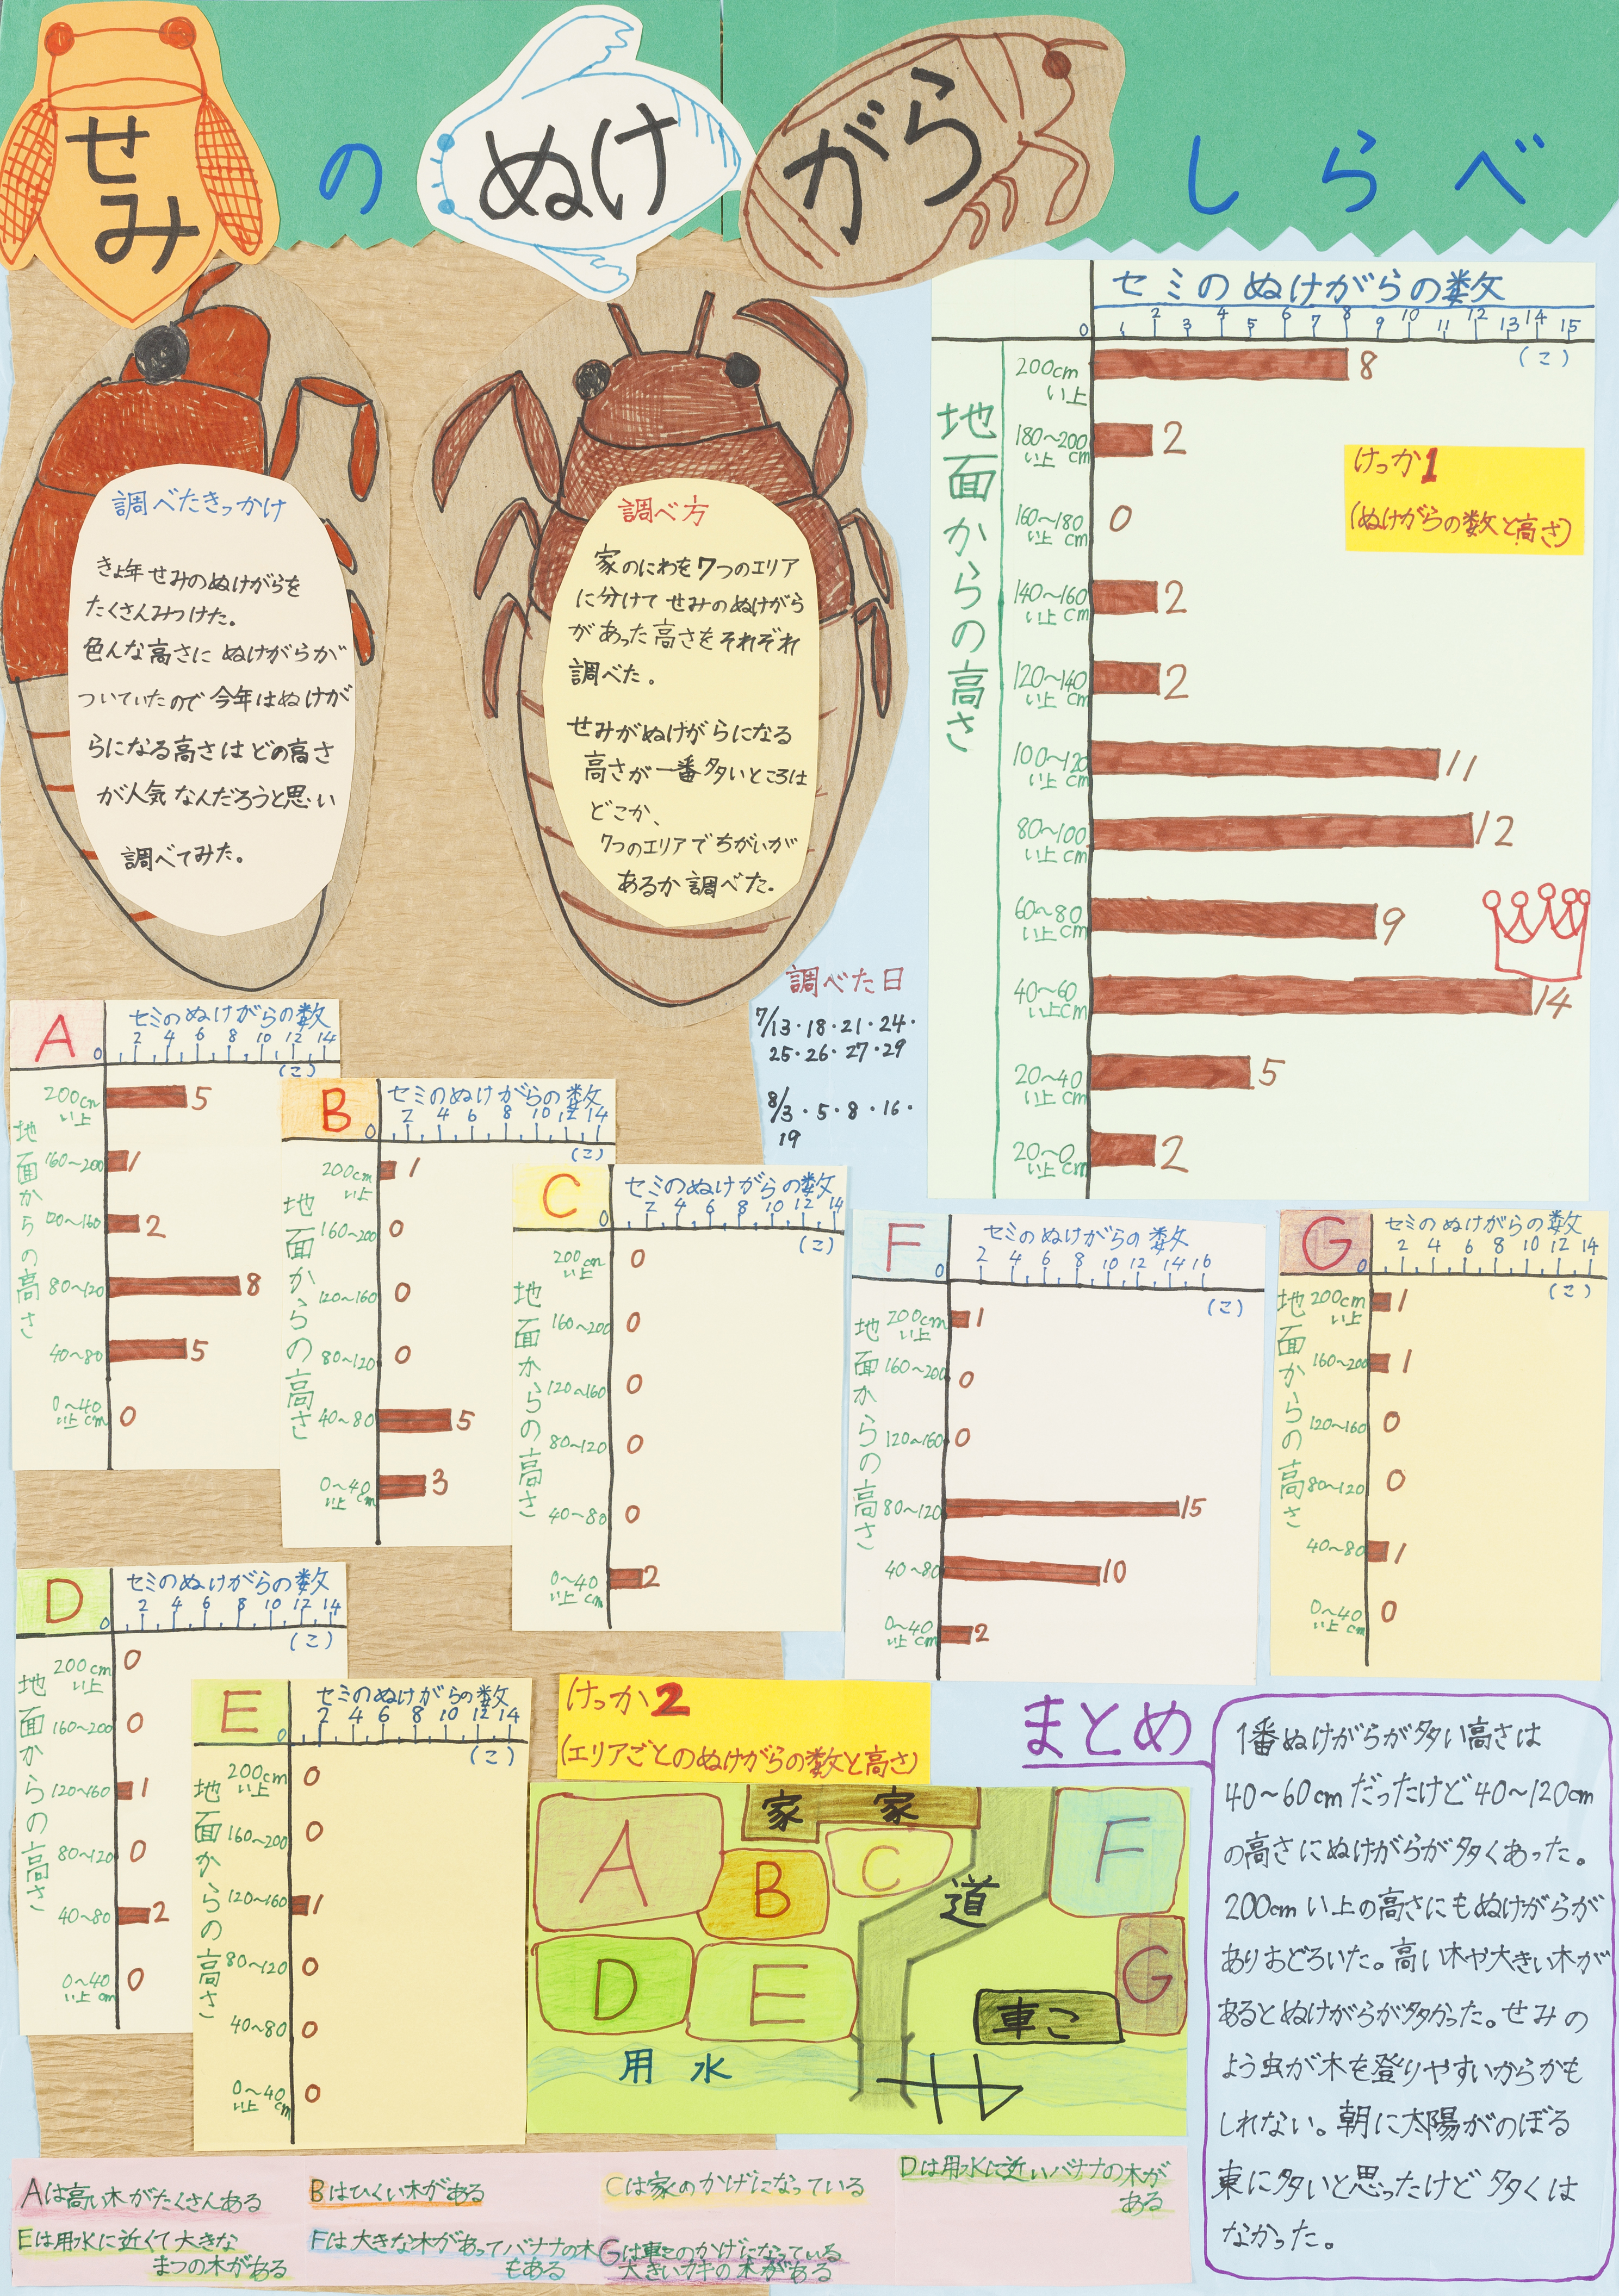 せみ
の
ぬけ
がら
しらべ
調べたきっかけ
きょ年せみのぬけがらを
たくさんみつけた。
色んな高さに ぬけがらが
ついていたので今年はぬけが
らになる高さはどの高さ
が人気なんだろうと思い
調べてみた。
調べ方
家のにわを7つのエリア
に分けてせみのぬけがら
があった高さをそれぞれ
調べた。
せみがぬけがらになる
高さが一番多いところは
どこか、
7つのエリアでちがいが
あるか調べた。
調べた日
7/13・18・21・24・
25・26・27・29
8/3・5・8・16・
19
セミのぬけがらの数
0 1 2 3 4 5 6 7 8 9 10 11 12 13 14 15
(こ)
地面からの高さ
200cm い上 8
180~200 い上 cm 2
160~180 い上 cm 0
140~160 い上 cm 2
120~140 い上 cm 2
100~120 い上 cm 11
80~100 い上 cm 12
60~80 い上 cm 9
40~60 い上 cm 14
20~40 い上 cm 5
20~0 い上 cm 2
けっか1
(ぬけがらの数と高さ)
A
セミのぬけがらの数
0 2 4 6 8 10 12 14
(こ)
地面からの高さ
200cm い上 5
160~200 1
120~160 2
80~120 8
40~80 5
0~40 い上 cm 0
B
セミのぬけがらの数
0 2 4 6 8 10 12 14
(こ)
地面からの高さ
200cm い上 1
160~200 0
120~160 0
80~120 0
40~80 5
0~40 い上 cm 3
C
セミのぬけがらの数
0 2 4 6 8 10 12 14
(こ)
地面からの高さ
200cm い上 0
160~200 0
120~160 0
80~120 0
40~80 0
0~40 い上 cm 2
F
セミのぬけがらの数
0 2 4 6 8 10 12 14 16
(こ)
地面からの高さ
200cm い上 1
160~200 0
120~160 0
80~120 15
40~80 10
0~40 い上 cm 2
G
セミのぬけがらの数
0 2 4 6 8 10 12 14
(こ)
地面からの高さ
200cm い上 1
160~200 1
120~160 0
80~120 0
40~80 1
0~40 い上 cm 0
D
セミのぬけがらの数
0 2 4 6 8 10 12 14
(こ)
地面からの高さ
200cm い上 0
160~200 0
120~160 1
80~120 0
40~80 2
0~40 い上 cm 0
E
セミのぬけがらの数
0 2 4 6 8 10 12 14
(こ)
地面からの高さ
200cm い上 0
160~200 0
120~160 1
80~120 0
40~80 0
0~40 い上 cm 0
けっか2
(エリアごとのぬけがらの数と高さ)
家 家
A
B
C
道
F
D
E
G
車こ
用水
まとめ
1番ぬけがらが多い高さは
40~60cmだったけど40~120cm
の高さにぬけがらが多くあった。
200cmい上の高さにもぬけがらが
ありおどろいた。高い木や大きい木が
あるとぬけがらが多かった。せみの
よう虫が木を登りやすいからかも
しれない。朝に太陽がのぼる
東に多いと思ったけど多くは
なかった。
Aは高い木がたくさんある
Bはひくい木がある
Cは家のかげになっている
Dは用水に近いバナナの木が
ある
Eは用水に近くて大きな
まつの木がある
Fは大きな木があってバナナの木
もある
Gは車このかげになっている
大きいカキの木がある